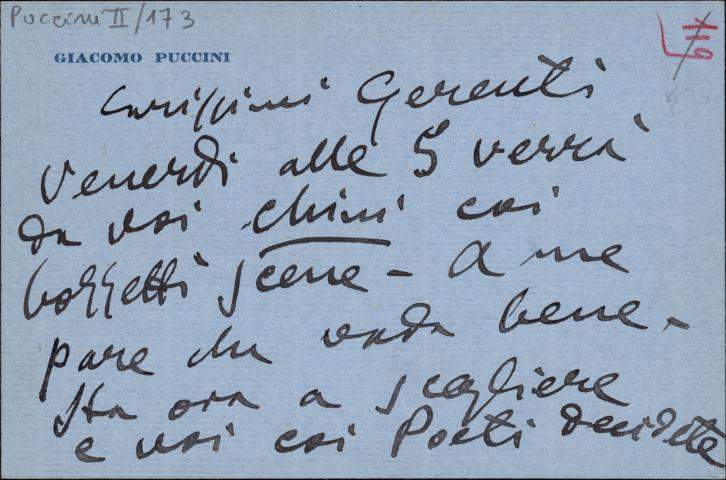 Puccini II/173
119
GIACOMO PUCCINI
Carissimi Gerenti
Venerdì alle 5 verrà
da voi Chini coi
bozzetti scene - A me
pare che vada bene -
Sta ora a scegliere
e voi coi Poeti decidete